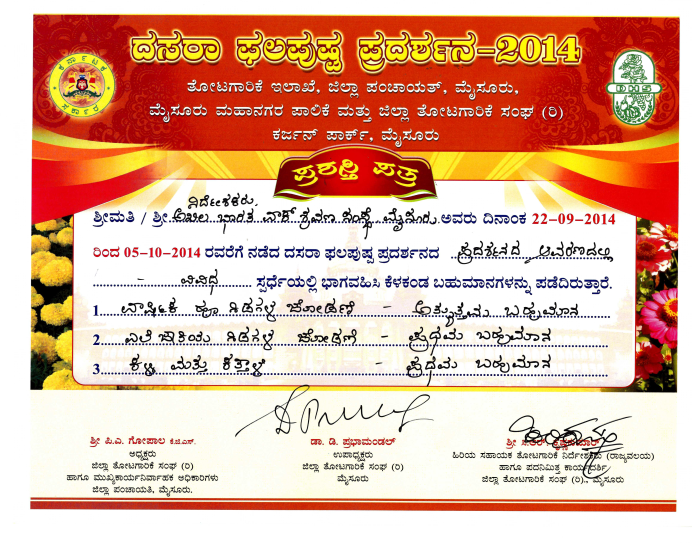 ದಸರಾ ಫಲಪುಷ್ಪ ಪ್ರದರ್ಶನ-2014
ಕರ್ನಾಟಕ
ಸರ್ಕಾರ
DHS
ತೋಟಗಾರಿಕೆ ಇಲಾಖೆ, ಜಿಲ್ಲಾ ಪಂಚಾಯತ್, ಮೈಸೂರು,
ಮೈಸೂರು ಮಹಾನಗರ ಪಾಲಿಕೆ ಮತ್ತು ಜಿಲ್ಲಾ ತೋಟಗಾರಿಕೆ ಸಂಘ (ರಿ)
ಕರ್ಜನ್ ಪಾರ್ಕ್, ಮೈಸೂರು
ಪ್ರಶಸ್ತಿ ಪತ್ರ
ನಿರ್ದೇಶಕರು.
ಶ್ರೀಮತಿ / ಶ್ರೀ ಅಖಿಲ ಭಾರತ ವಾಕ್ ಶ್ರವಣ ಸಂಸ್ಥೆ ಮೈಸೂರು ಅವರು ದಿನಾಂಕ 22-09-2014
ರಿಂದ 05-10-2014 ರವರೆಗೆ ನಡೆದ ದಸರಾ ಫಲಪುಷ್ಪ ಪ್ರದರ್ಶನದ ಪ್ರದರ್ಶನದ ಆವರಣದಲ್ಲಿ
- ವಿವಿಧ ಸ್ಪರ್ಧೆಯಲ್ಲಿ ಭಾಗವಹಿಸಿ ಕೆಳಕಂಡ ಬಹುಮಾನಗಳನ್ನು ಪಡೆದಿರುತ್ತಾರೆ.
1 ವಾರ್ಷಿಕ ಹೂ ಗಿಡಗಳ ಜೋಡಣೆ - ಅತ್ಯುತ್ತಮ ಬಹುಮಾನ
2 ಎಲೆ ಜಾತಿಯ ಗಿಡಗಳ ಜೋಡಣೆ - ಪ್ರಥಮ ಬಹುಮಾನ
3 ಕಳ್ಳಿ ಮತ್ತು ಕತ್ತಾಳೆ - ಪ್ರಥಮ ಬಹುಮಾನ
ಶ್ರೀ ಪಿ.ಎ. ಗೋಪಾಲ ಕೆ.ಜಿ.ಎಸ್.
ಅಧ್ಯಕ್ಷರು
ಜಿಲ್ಲಾ ತೋಟಗಾರಿಕೆ ಸಂಘ (ರಿ)
ಹಾಗೂ ಮುಖ್ಯಕಾರ್ಯನಿರ್ವಾಹಕ ಅಧಿಕಾರಿಗಳು
ಜಿಲ್ಲಾ ಪಂಚಾಯತಿ, ಮೈಸೂರು.
ಡಾ. ಡಿ. ಪ್ರಭಾಮಂಡಲ್
ಉಪಾಧ್ಯಕ್ಷರು
ಜಿಲ್ಲಾ ತೋಟಗಾರಿಕೆ ಸಂಘ (ರಿ)
ಮೈಸೂರು
ಶ್ರೀ
ಹಿರಿಯ ಸಹಾಯಕ ತೋಟಗಾರಿಕೆ ನಿರ್ದೇಶಕರು (ರಾಜ್ಯವಲಯ)
ಹಾಗೂ ಪದನಿಮಿತ್ತ ಕಾರ್ಯದರ್ಶಿ
ಜಿಲ್ಲಾ ತೋಟಗಾರಿಕೆ ಸಂಘ (ರಿ)., ಮೈಸೂರು